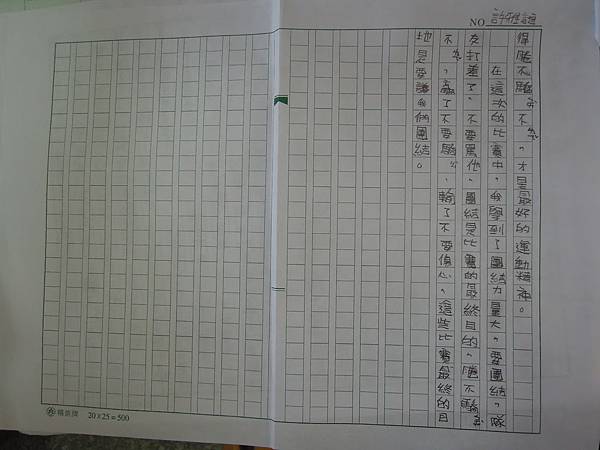 NO.
得勝不驕不，才是最好的運動精神。
在這次的比賽中，我學到了團結力量大，要團結，隊
友打差了，不要罵他，團結是比賽的最終目的，勝不驕
不，贏了不要驕，輸了不要傷心，這些比賽最終的目
地是要讓我們團結。
20×25=500